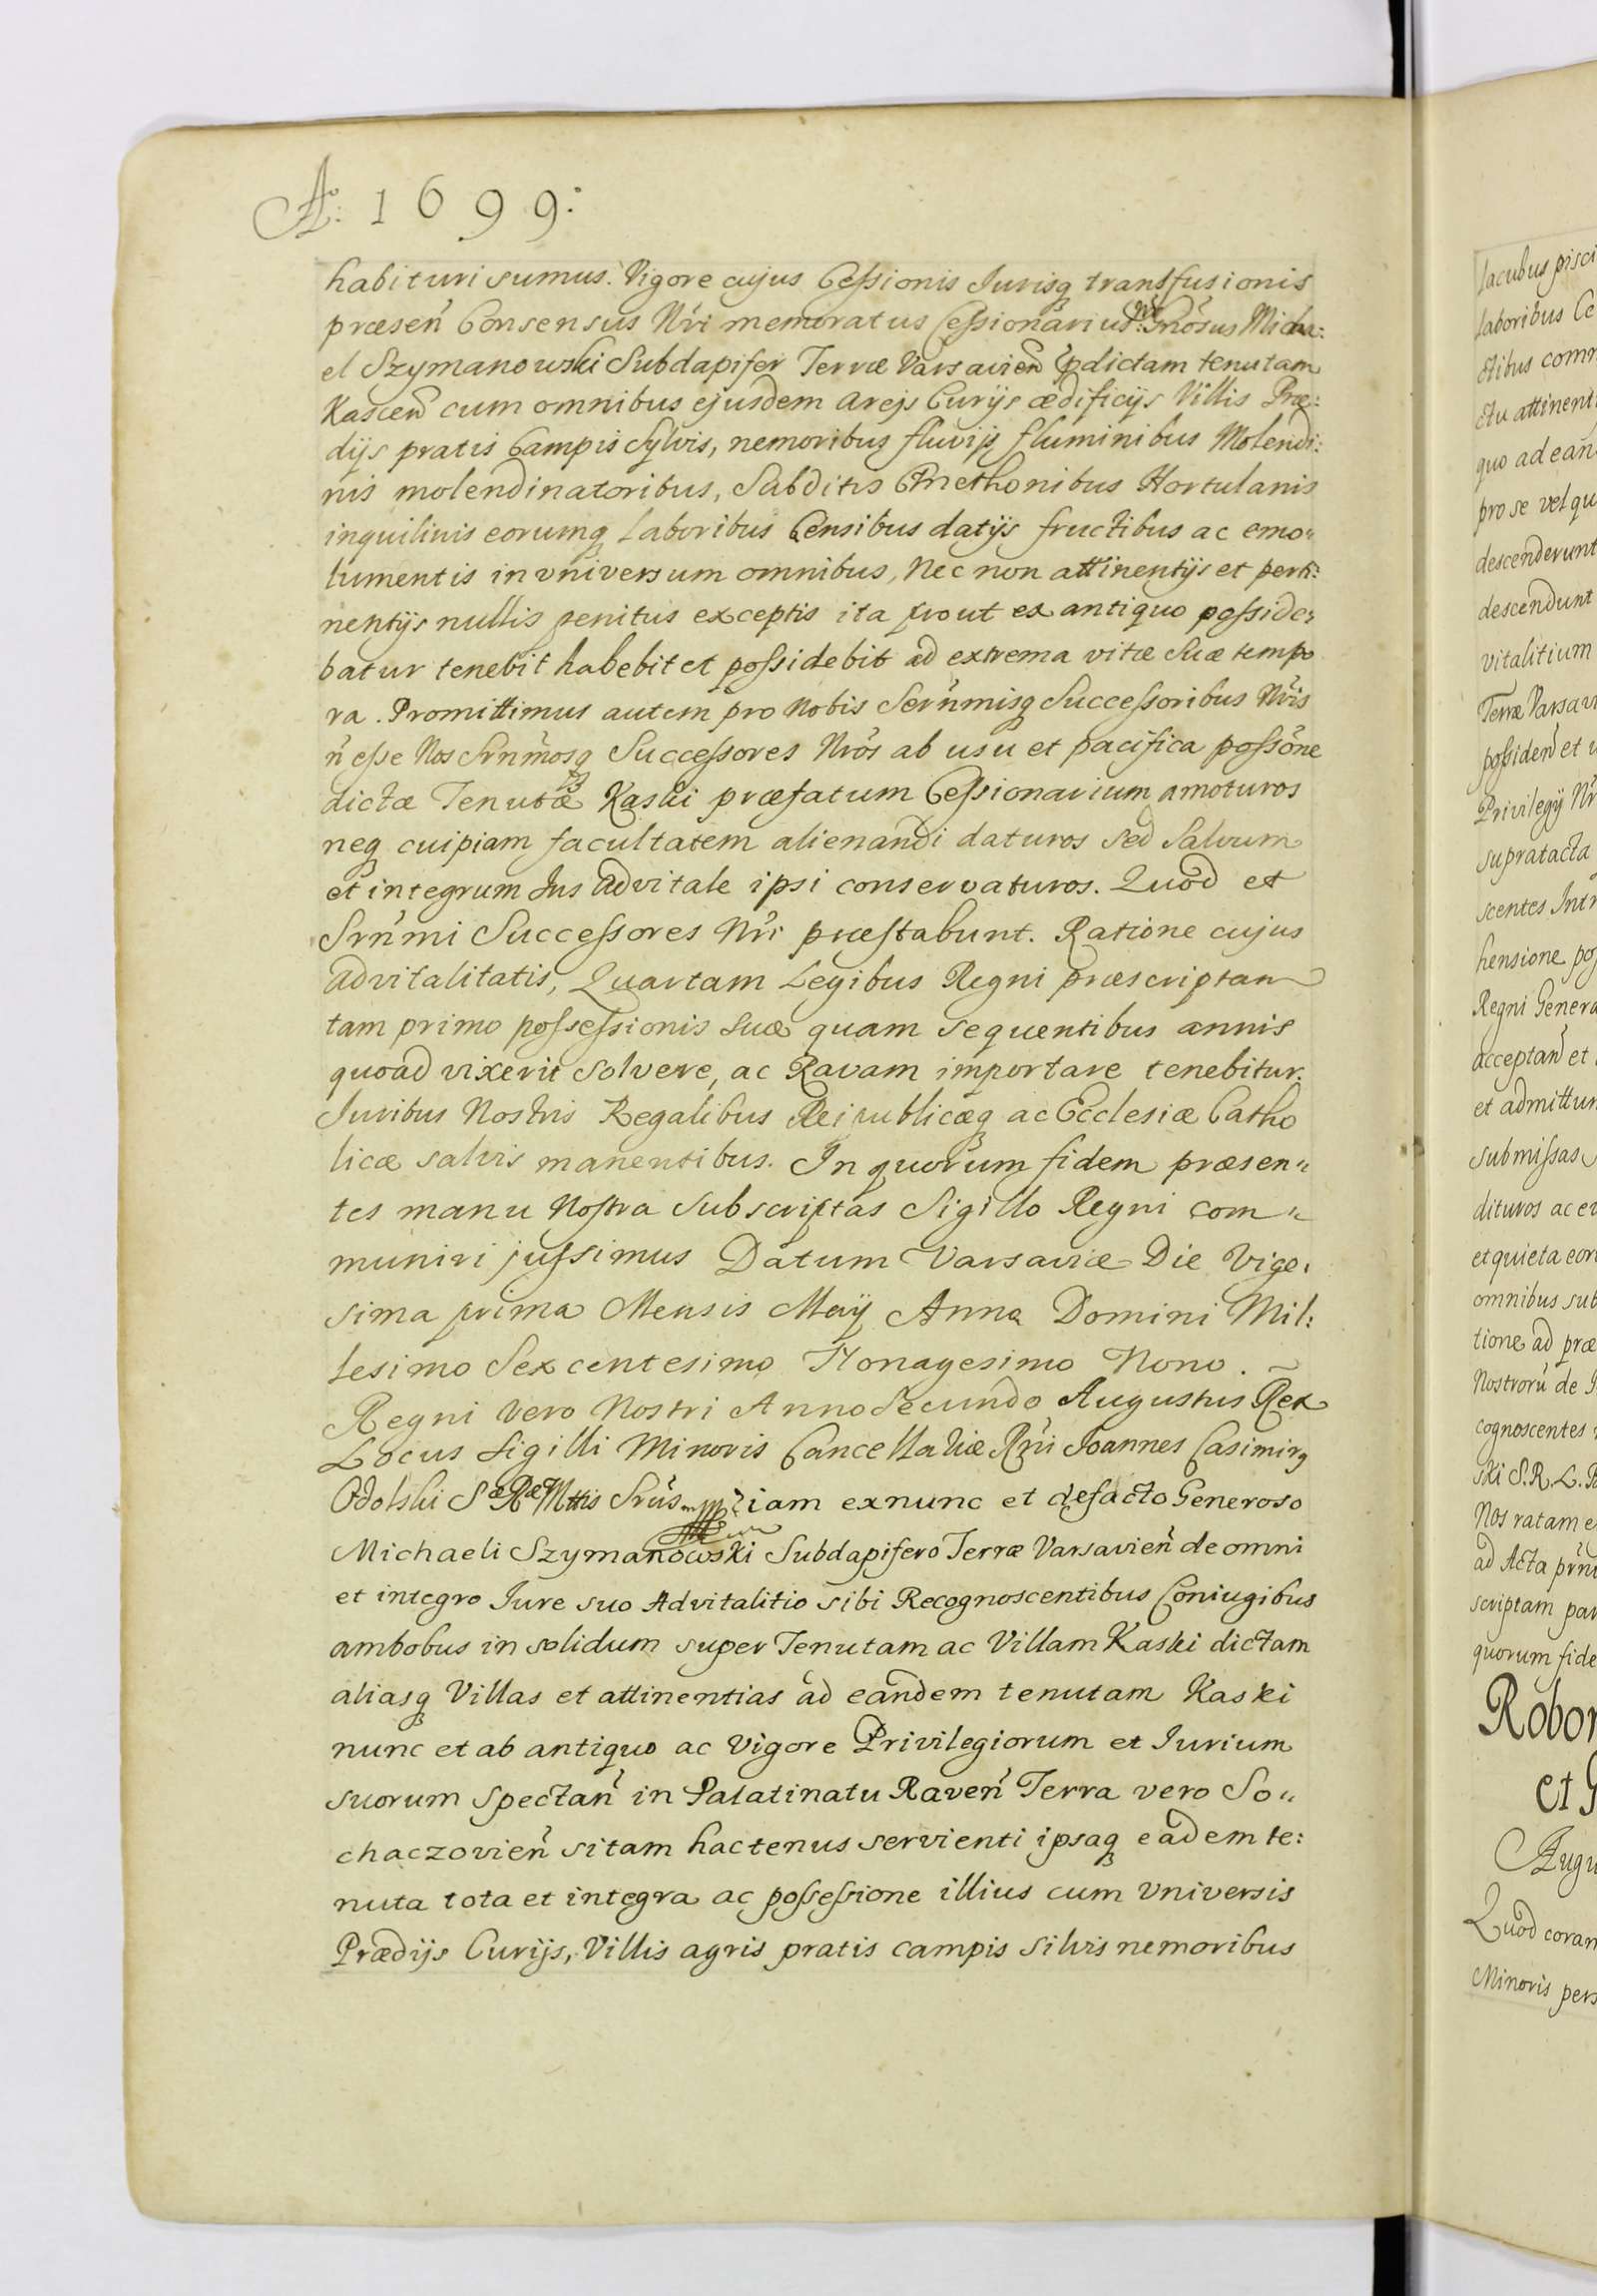 Aº: 1699:
habituri sumus. Vigore cujus Cessionis Jurisq transfusionis
præsen̄ Consensus Nr̄i memoratus Cessionarius Gn̄osus Micha:
el Szymanowski Subdapifer Terræ Varsavien̄ p̄dictam tenutam
Kascen̄ cum omnibus ejusdem arejs Curijs ædificijs Villis Præ:
dijs pratis Campis Sylvis, nemoribus fluvijs fluminibus Molendi:
nis molendinatoribus, Subditis Cmethonibus Hortulanis
inquilinis eorumq Laboribus Censibus datijs fructibus ac emo„
lumentis in vniversum omnibus, Nec non attinentijs et perti:
nentijs nullis penitus exceptis ita prout ex antiquo posside„
batur tenebit habebit et possidebit ad extrema vitæ Suæ tempo
ra. Promittimus autem pro Nobis Sern̄misq Successoribus Nr̄is
n̄ esse Nos Srn̄mosq Successores Nr̄os ab usu et pacifica possōne
dictæ Tenutæ Kaski præfatum Cessionarium amoturos
neq cuipiam facultatem alienandi daturos sed Salvum
et integrum Jus advitale ipsi conservaturos. Quod et
Srn̄mi Successores Nr̄i præstabunt. Ratione cujus
advitalitatis, Quartam Legibus Regni præscriptam
tam primo possessionis Suæ quam sequentibus annis
quoad vixerit Solvere, ac Ravam importare tenebitur.
Juribus Nostris Regalibus Reipublicæq ac Ecclesiæ Catho
licæ salvis manentibus. In quorum fidem præsen„
tes manu Nostra Subscriptas Sigillo Regni com„
muniri jussimus Datum Varsaviæ Die Vige„
sima prima Mensis Maÿ Anno Domini Mil:
lesimo Sexcentesimo Nonagesimo Nono.
Regni vero Nostri Anno Secundo Augustus Rex
Locus Sigilli Minoris Cancellariæ Rn̄i Joannes Casimirq
Odolski Sæ Ræ Mttis Srius iam ex nunc et defacto Generoso
Michaeli Szymanowski Subdapifero Terræ Varsavien̄ de omni
et integro Jure suo Advitalitio sibi Recognoscentibus Coniugibus
ambobus in solidum super Tenutam ac Villam Kaski dictam
aliasq Villas et attinentias ad eandem tenutam Kaski
nunc et ab antiquo ac Vigore Privilegiorum et Jurium
suorum Spectan̄ in Palatinatu Raven̄ Terra vero So„
chaczovien̄ sitam hactenus servienti ipsaq eadem te:
nuta tota et integra ac possessione illius cum Vniversis
Prædijs Curijs, Villis agris pratis campis silvis nemoribus
lacubus pisci
Laboribus Ce
ctibus comm
ctu attinent
quo ad ean
pro se vel qu
descenderunt
descendunt
vitalitium
Terræ Varsav
possiden̄ et
Privilegÿ Nr
supratacta
scentes Intr
hensione pos
Regni Genera
acceptan̄ et
et admittun
submissas
dituros ac
et quieta eor
omnibus sub
tione ad præ
Nostrorū de
cognoscentes
ski S.R.L.
Nos ratam e
ad Acta prn̄
scriptam par
quorum fide
Robor
et G
Augu
Quod coram
Minoris pers